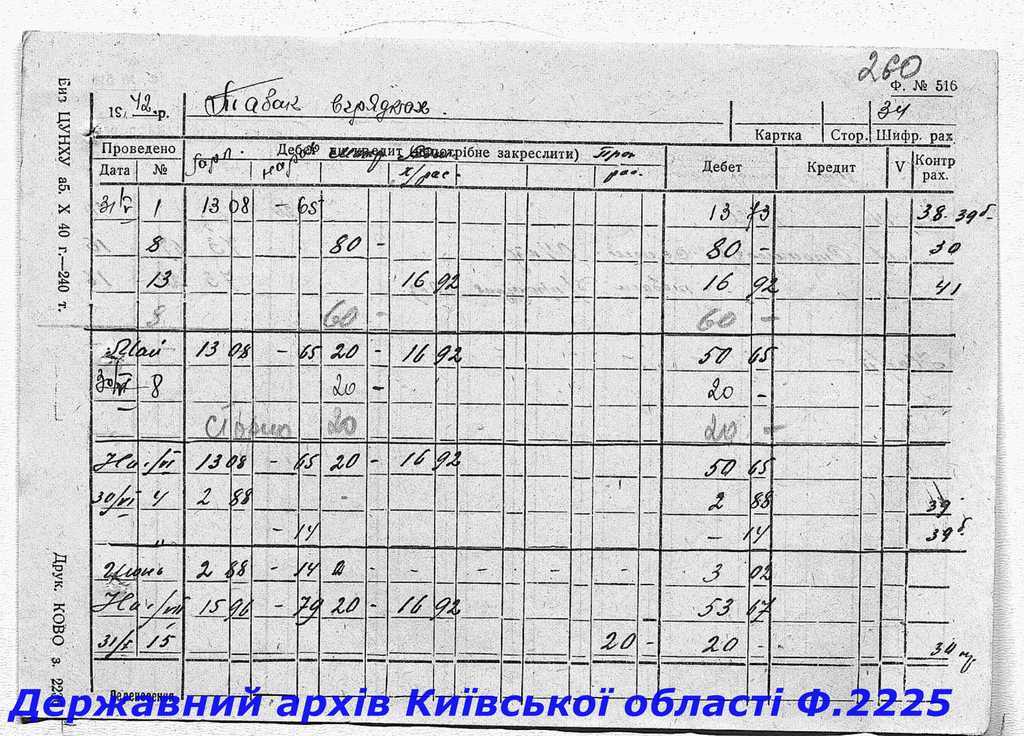 260
Ф. № 516
194 2 р. Табак в грядках. 34
Картка Стор. Шифр. рах
Проведено Дебет кредит (потрібне закреслити) Дебет Кредит V Контр рах.
Дата №
31/V 1 13 08 - 65 13 73 38-39б-
8 80 - 80 - 30
13 16 92 16 92 41
8 60 - 60 -
Май 13 08 - 65 20 - 16 92 50 65
30/VI 8 20 - 20 -
Сторно 20 20 -
На 1/VI 13 08 - 65 20 - 16 92 50 65
30/VI 4 2 88 2 88 39
" - 14 - 14 39б
Июнь 2 88 - 14 - - - - - - 3 02
На 1/VII 15 96 - 79 20 - 16 92 53 67
31/X 15 20 - 20 - 30
Биз ЦУНХУ аб. X 40 г.—240 т.
Друк. КОВО з. 22
Державний архів Київської області Ф.2225